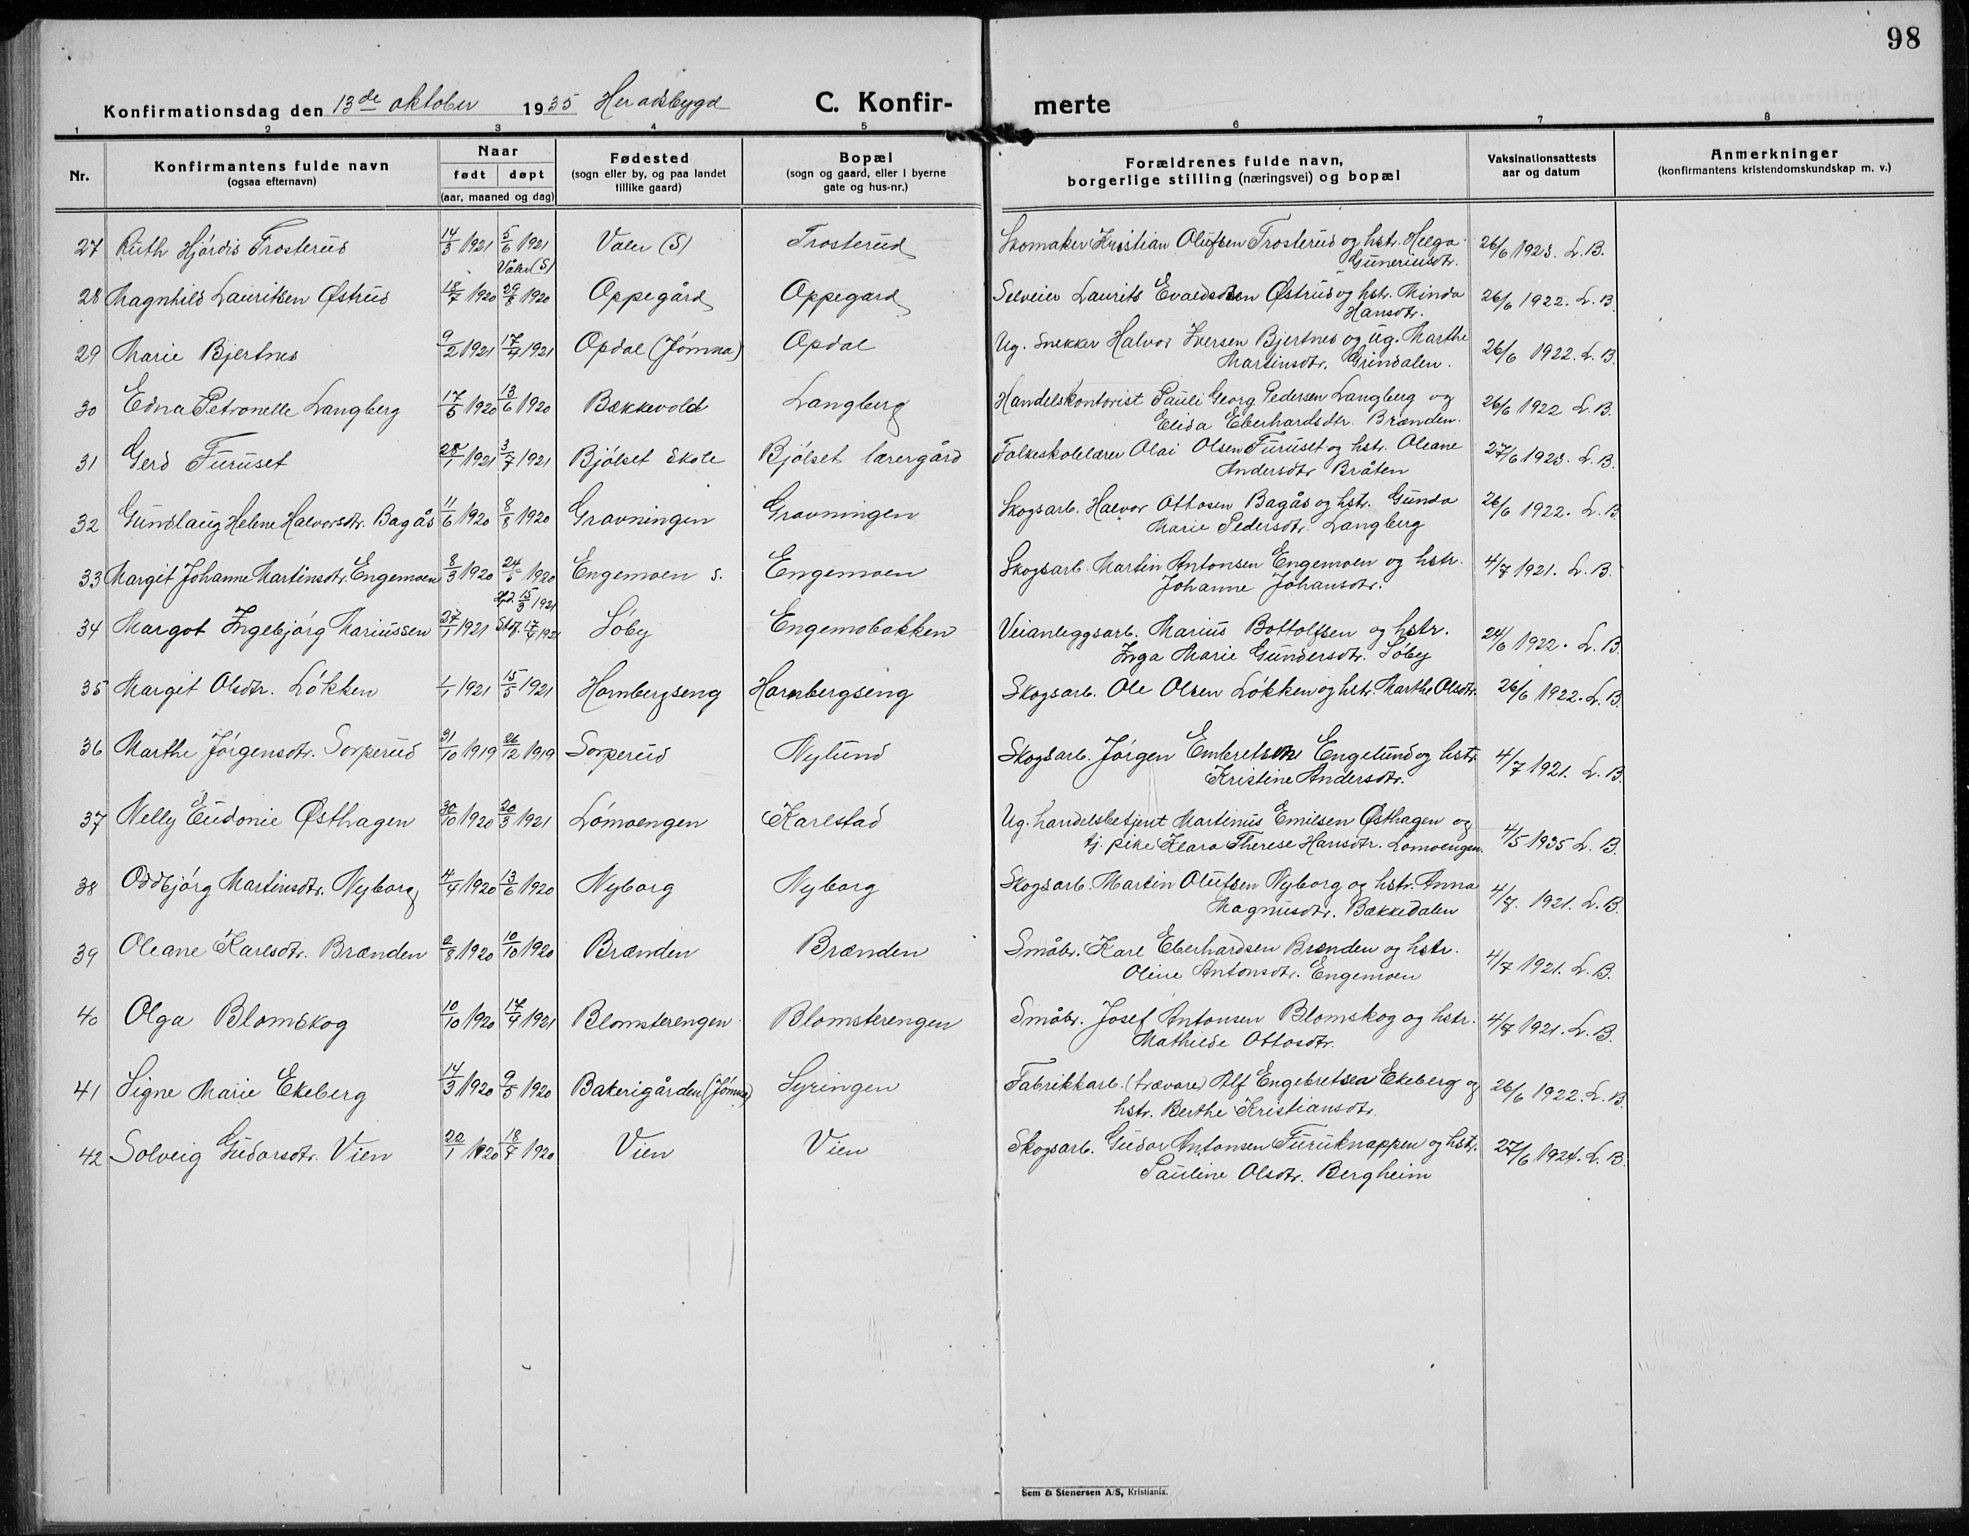 98
Konfirmationsdag den 13de oktober 1935 Heradsbygd C. Konfir- merte
1 2 3 4 5 6 7 8
Nr. Konfirmantens fulde navn (ogsaa efternavn) Naar født døpt (aar, maaned og dag) Fødested (sogn eller by, og paa landet tillike gaard) Bopæl (sogn og gaard, eller i byerne gate og hus-nr.) Forældrenes fulde navn, borgerlige stilling (næringsvei) og bopæl Vaksinationsattests aar og datum Anmerkninger (konfirmantens kristendomskundskap m. v.)
27 Ruth Hjördis Trosterud 14/3 1921 5/6 1921 Valer (S) Trosterud Skomaker Kristian Olufsen Trosterud og hstr. Helga 26/6 1923. L.B.
Våler (S) Guneriusdtr.
28 Magnhild Lauritsen Østrud 18/7 1920 29/8 1920 Oppegård Oppegard Selveier Laurits Evaldsen Østrud og hstr. Minda 26/6 1922. L.B.
Hansdtr.
29 Marie Bjertnes 9/2 1921 17/4 1921 Opdal (Jömna) Opdal Ug. Snekker Halvor Iversen Bjertnes og ug. Marthe 26/6 1922. L.B.
Martinsdtr. Grindalen.
30 Edna Petronelle Langberg 17/5 1920 13/6 1920 Bækkevold Langberg Handelskontorist Pauli Georg Pedersen Langberg og 26/6 1922 L.B.
Elida Eberhardsdtr. Brænden.
31 Gerd Furuset 28/1 1921 3/7 1921 Bjölset Skole Bjölset lærergård Folkeskolelærer Olai Olsen Furuset og hstr. Oleane 27/6 1923. L.B.
Andersdtr Bråten
32 Gundlaug Helene Halvorsdtr. Bagås 11/6 1920 8/8 1920 Gravningen Gravningen Skogsarb. Halvor Ottosen Bagås og hstr. Gunda 26/6 1922. L.B.
Marie Pedersdtr. Langberg
33 Margit Johanne Martinsdtr. Engemoen 8/3 1920 24/5 1920 Engemoen S. Engemoen Skogsarb. Martin Antonsen Engemoen og hstr. 4/7 1921. L.B.
Hjd. 15/3 1921 Johanne Johansdtr.
34 Margot Ingebjörg Mariussen 27/1 1921 Stdf. 17/4 1921 Söby Engemobakken Veianleggsarb. Marius Bottolfsen og hstr. 24/6 1922. L.B.
Inga Marie Gundersdtr. Söby
35 Margit Olsdtr. Lökken 1/1 1921 15/5 1921 Hornbergseng Hornbergseng Skogsarb. Ole Olsen Lökken og hstr. Marthe Olsdtr. 26/6 1922. L.B.
36 Marthe Jörgensdtr. Sorperud 31/10 1919 26/12 1919 Sorperud Nylund Skogsarb. Jörgen Embretsen Engelund og hstr 4/7 1921. L.B.
Kristine Andersdtr.
37 Nelly Eudonie Østhagen 30/10 1920 20/3 1921 Lömoengen Karlstad Ug. handelsbetjent Martinus Emilsen Østhagen og 4/5 1935 L.B.
tj. pike Klara Therese Hansdtr. Lomoengen.
38 Oddbjörg Martinsdtr. Nyborg 4/4 1920 13/6 1920 Nyborg Nyborg Skogsarb. Martin Olufsen Nyborg og hstr. Anna 4/7. 1921. L.B.
Magnusdtr. Bækkedalen
39 Oleane Karlsdtr. Brænden 2/8 1920 10/10 1920 Brænden Brænden Småbr. Karl Eberhardsen Brænden og hstr. 4/7 1921. L.B.
Oline Antonsdtr. Engemoen
40 Olga Blomskog 10/10 1920 17/4 1921 Blomsterengen Blomsterengen Småbr. Josef Antonsen Blomskog og hstr. 4/7 1921. L.B.
Mathilde Ottosdtr.
41 Signe Marie Ekeberg 14/3 1920 9/5 1920 Bakerigården (Jömna) Syringen Fabrikkarb. (trævare) Alf Engebretsen Ekeberg og 26/6 1922. L.B.
hstr. Berthe Kristiansdtr.
42 Solveig Gudorsdtr. Vien 20/1 1920 18/7 1920 Vien Vien Skogsarb. Gudor Antonsen Furuknappen og hstr. 27/6 1924. L.B.
Pauline Olsdtr. Bergheim
Sem & Stenersen A/S, Kristiania.